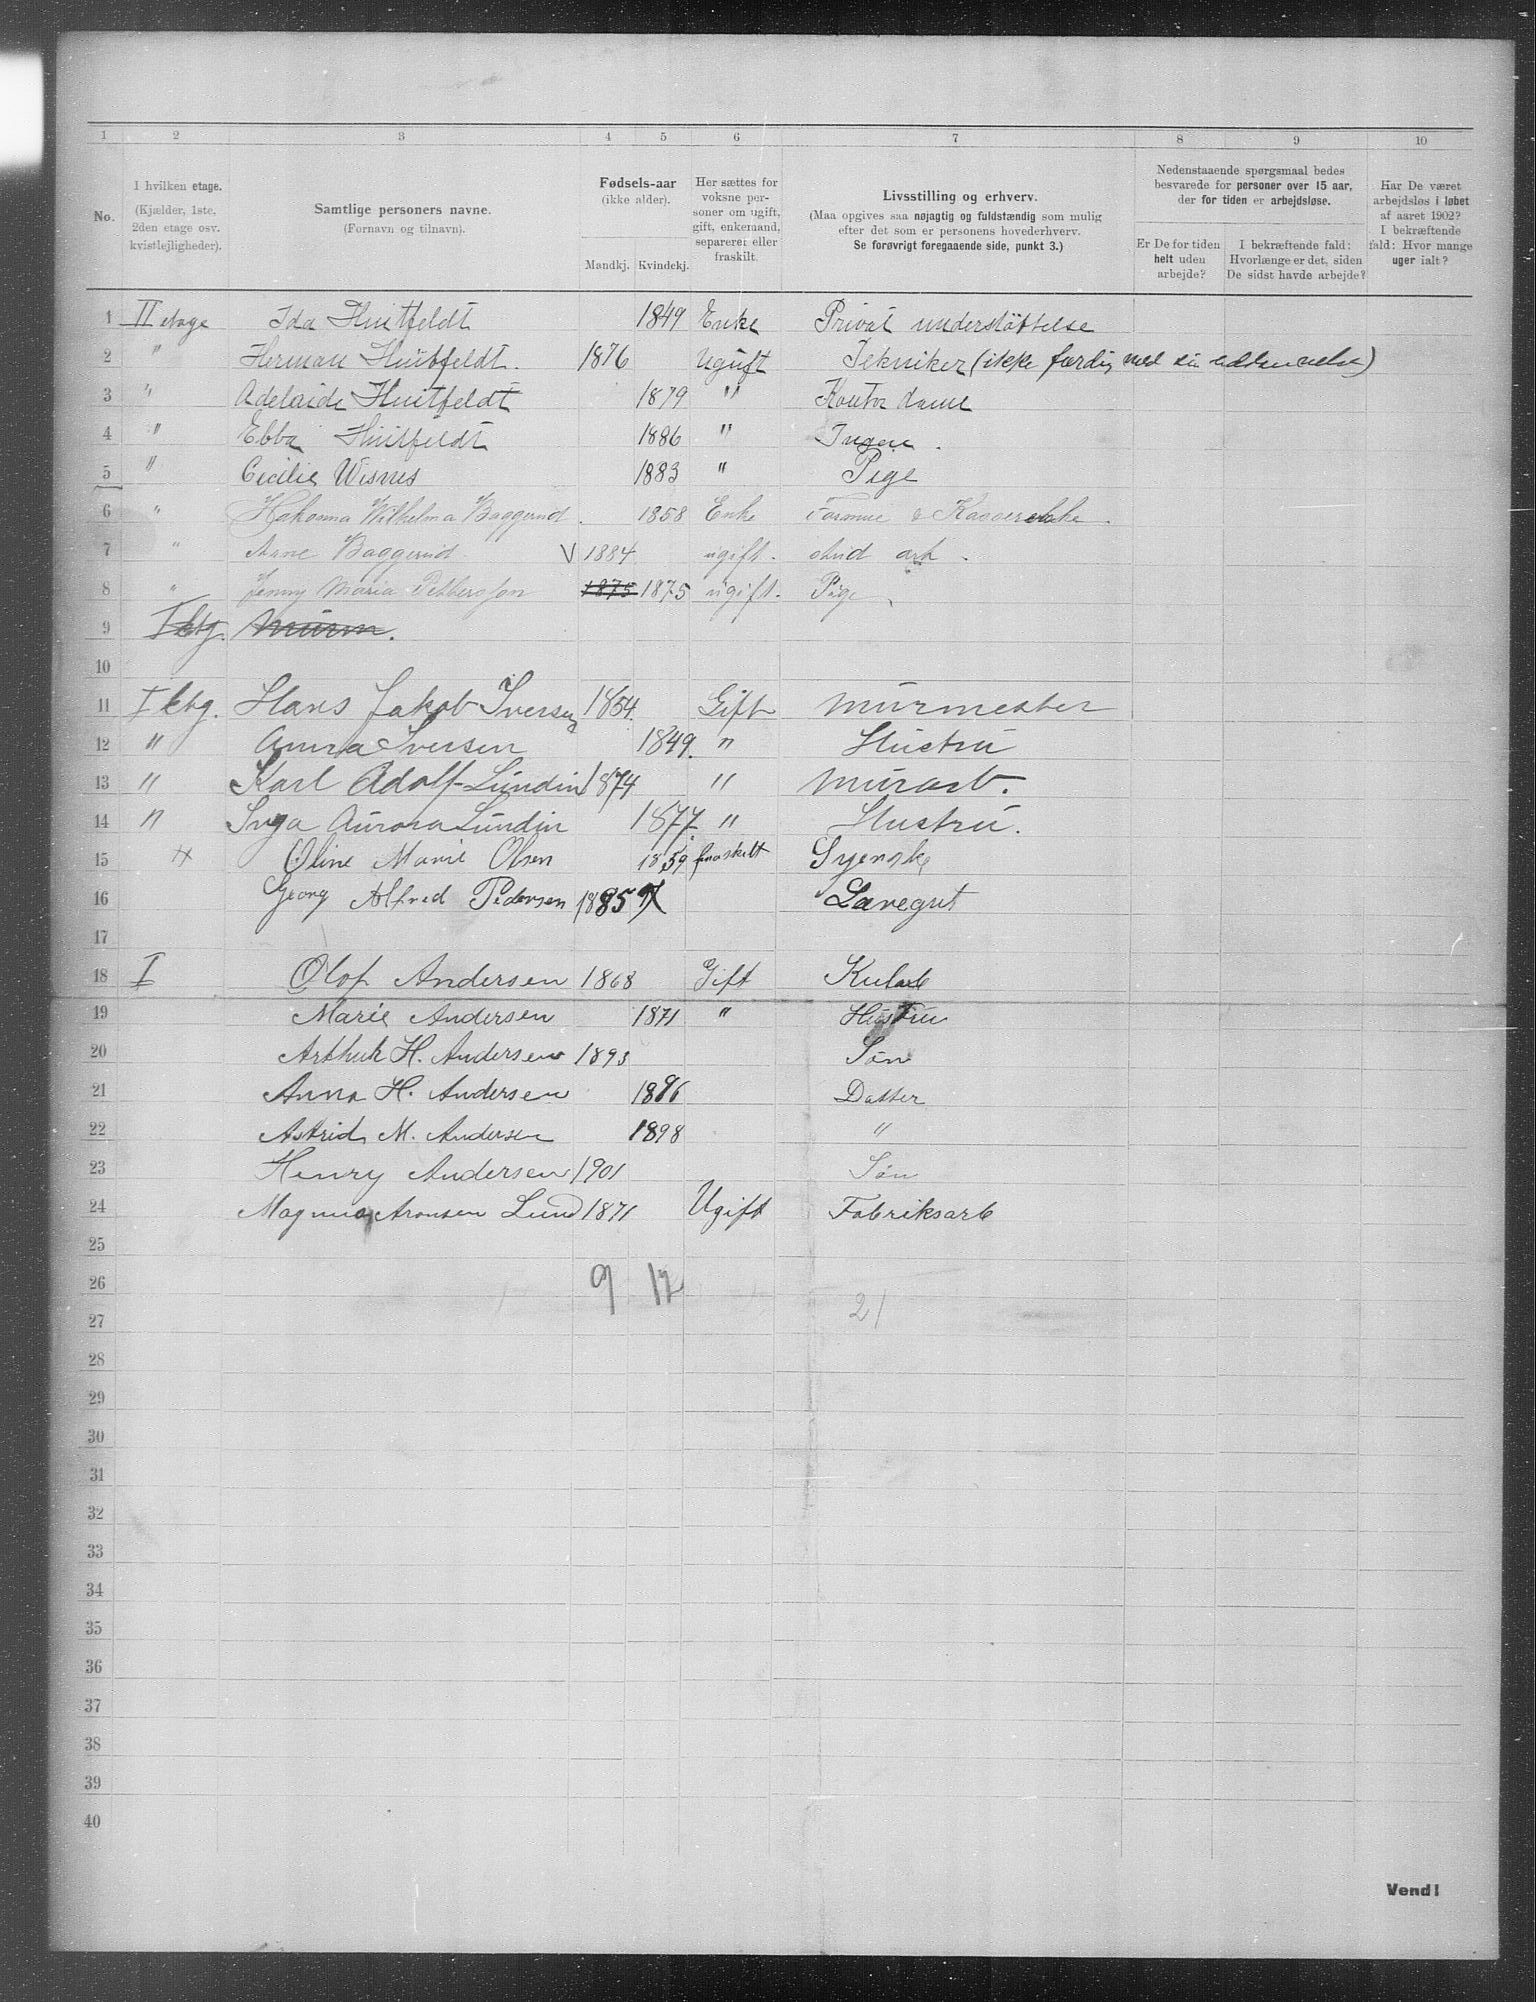 1 2 3 4 5 6 7 8 9 10
No.
I hvilken etage.
(Kjælder, 1ste.
2den etage osv.
kvistlejligheder).
Samtlige personers navne.
(Fornavn og tilnavn).
Fødsels-aar
(ikke alder).
Mandkj. Kvindekj.
Her sættes for
voksne per-
soner om ugift,
gift, enkemand,
separeret eller
fraskilt.
Livsstilling og erhverv.
(Maa opgives saa nøjagtig og fuldstændig som mulig
efter det som er personens hovederhverv.
Se forøvrigt foregaaende side, punkt 3.)
Nedenstaaende spørgsmaal bedes
besvarede for personer over 15 aar,
der for tiden er arbejdsløse.
Er De for tiden
helt uden
arbejde?
I bekræftende fald:
Hvorlænge er det, siden
De sidst havde arbejde?
Har De været
arbejdsløs i løbet
af aaret 1902?
I bekræftende
fald: Hvor mange
uger ialt?
1 II etage Ida Huitfeldt 1849 Enke Privat understøttelse
2 " Herman Huitfeldt. 1876 Ugift Tekniker (ikke færdig med sin uddannelse)
3 " Adelaide Huitfeldt 1879 " Kontor dame
4 " Ebba Huitfeldt 1886 " Ingen.
5 " Cecilie Wisnes 1883 " Pige
6 " Wilhelma 1858 Enke Formue &
7 " V 1884 ugift. stud art.
8 " Jenny Maria Pettersson 1875 1875 ugift. Pige
9 I etg. Murm.
10
11 I etg. Hans Jakob Iversen 1854. Gift Murmester
12 " Anna Iversen 1849. " Hustru
13 " Karl Adolf Lundin 1874 " Murarb.
14 " Inga Aurora Lundin 1877. " Hustru.
15 Oline Marie Olsen 1859 fraskilt Syerske
16 Georg Alfred Pedersen 1885 Læregut
17
18 I Olof Andersen 1868 Gift
19 Marie Andersen 1871 " Hustru
20 Arthur H. Andersen 1893 Søn
21 Anna H. Andersen 1896 Datter
22 Astrid M. Andersen 1898 "
23 Henry Andersen 1901 Søn
24 Magnus Aronsen Lund 1871 Ugift Fabriksarb
25
26 9 12
27 21
28
29
30
31
32
33
34
35
36
37
38
39
40
Vend!